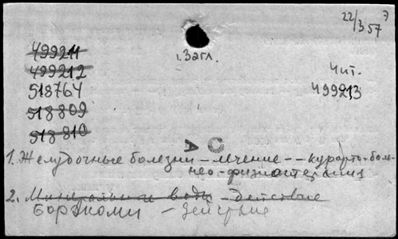 22/3 57 г
1. Загл.
499211
499212
518764
518809
518810
Чит.
499213
А С
1. Желудочные болезни – лечение – – курорты – баль-
нео-физиотерапия
2. Минеральные воды – действие
Боржоми – действие